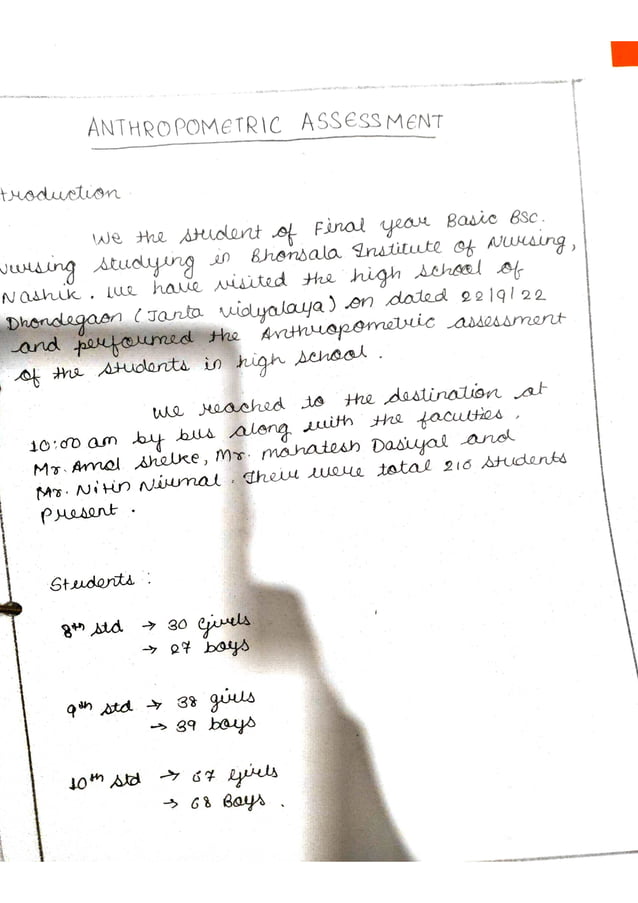 ANTHROPOMETRIC ASSESSMENT
troduction
We the student of Final year Basic BSC.
Nursing studying in Bhonsala Institute of Nursing,
Nashik. We have visited the high school of
Dhondegaon (Janta Vidyalaya) on dated 22/9/22
and performed the Anthropometric assessment
of the students in high school.
We reached to the destination at
10:00 am by bus along with the faculties.
Mr. Amol Shelke, Mr. Mahatesh Dasiyal and
Mr. Nitin Nirmal. Their were total 216 students
Present.
Students :
8th std → 30 Girls
→ 27 boys
9th std → 38 girls
→ 39 boys
10th std → 67 Girls
→ 68 Boys.